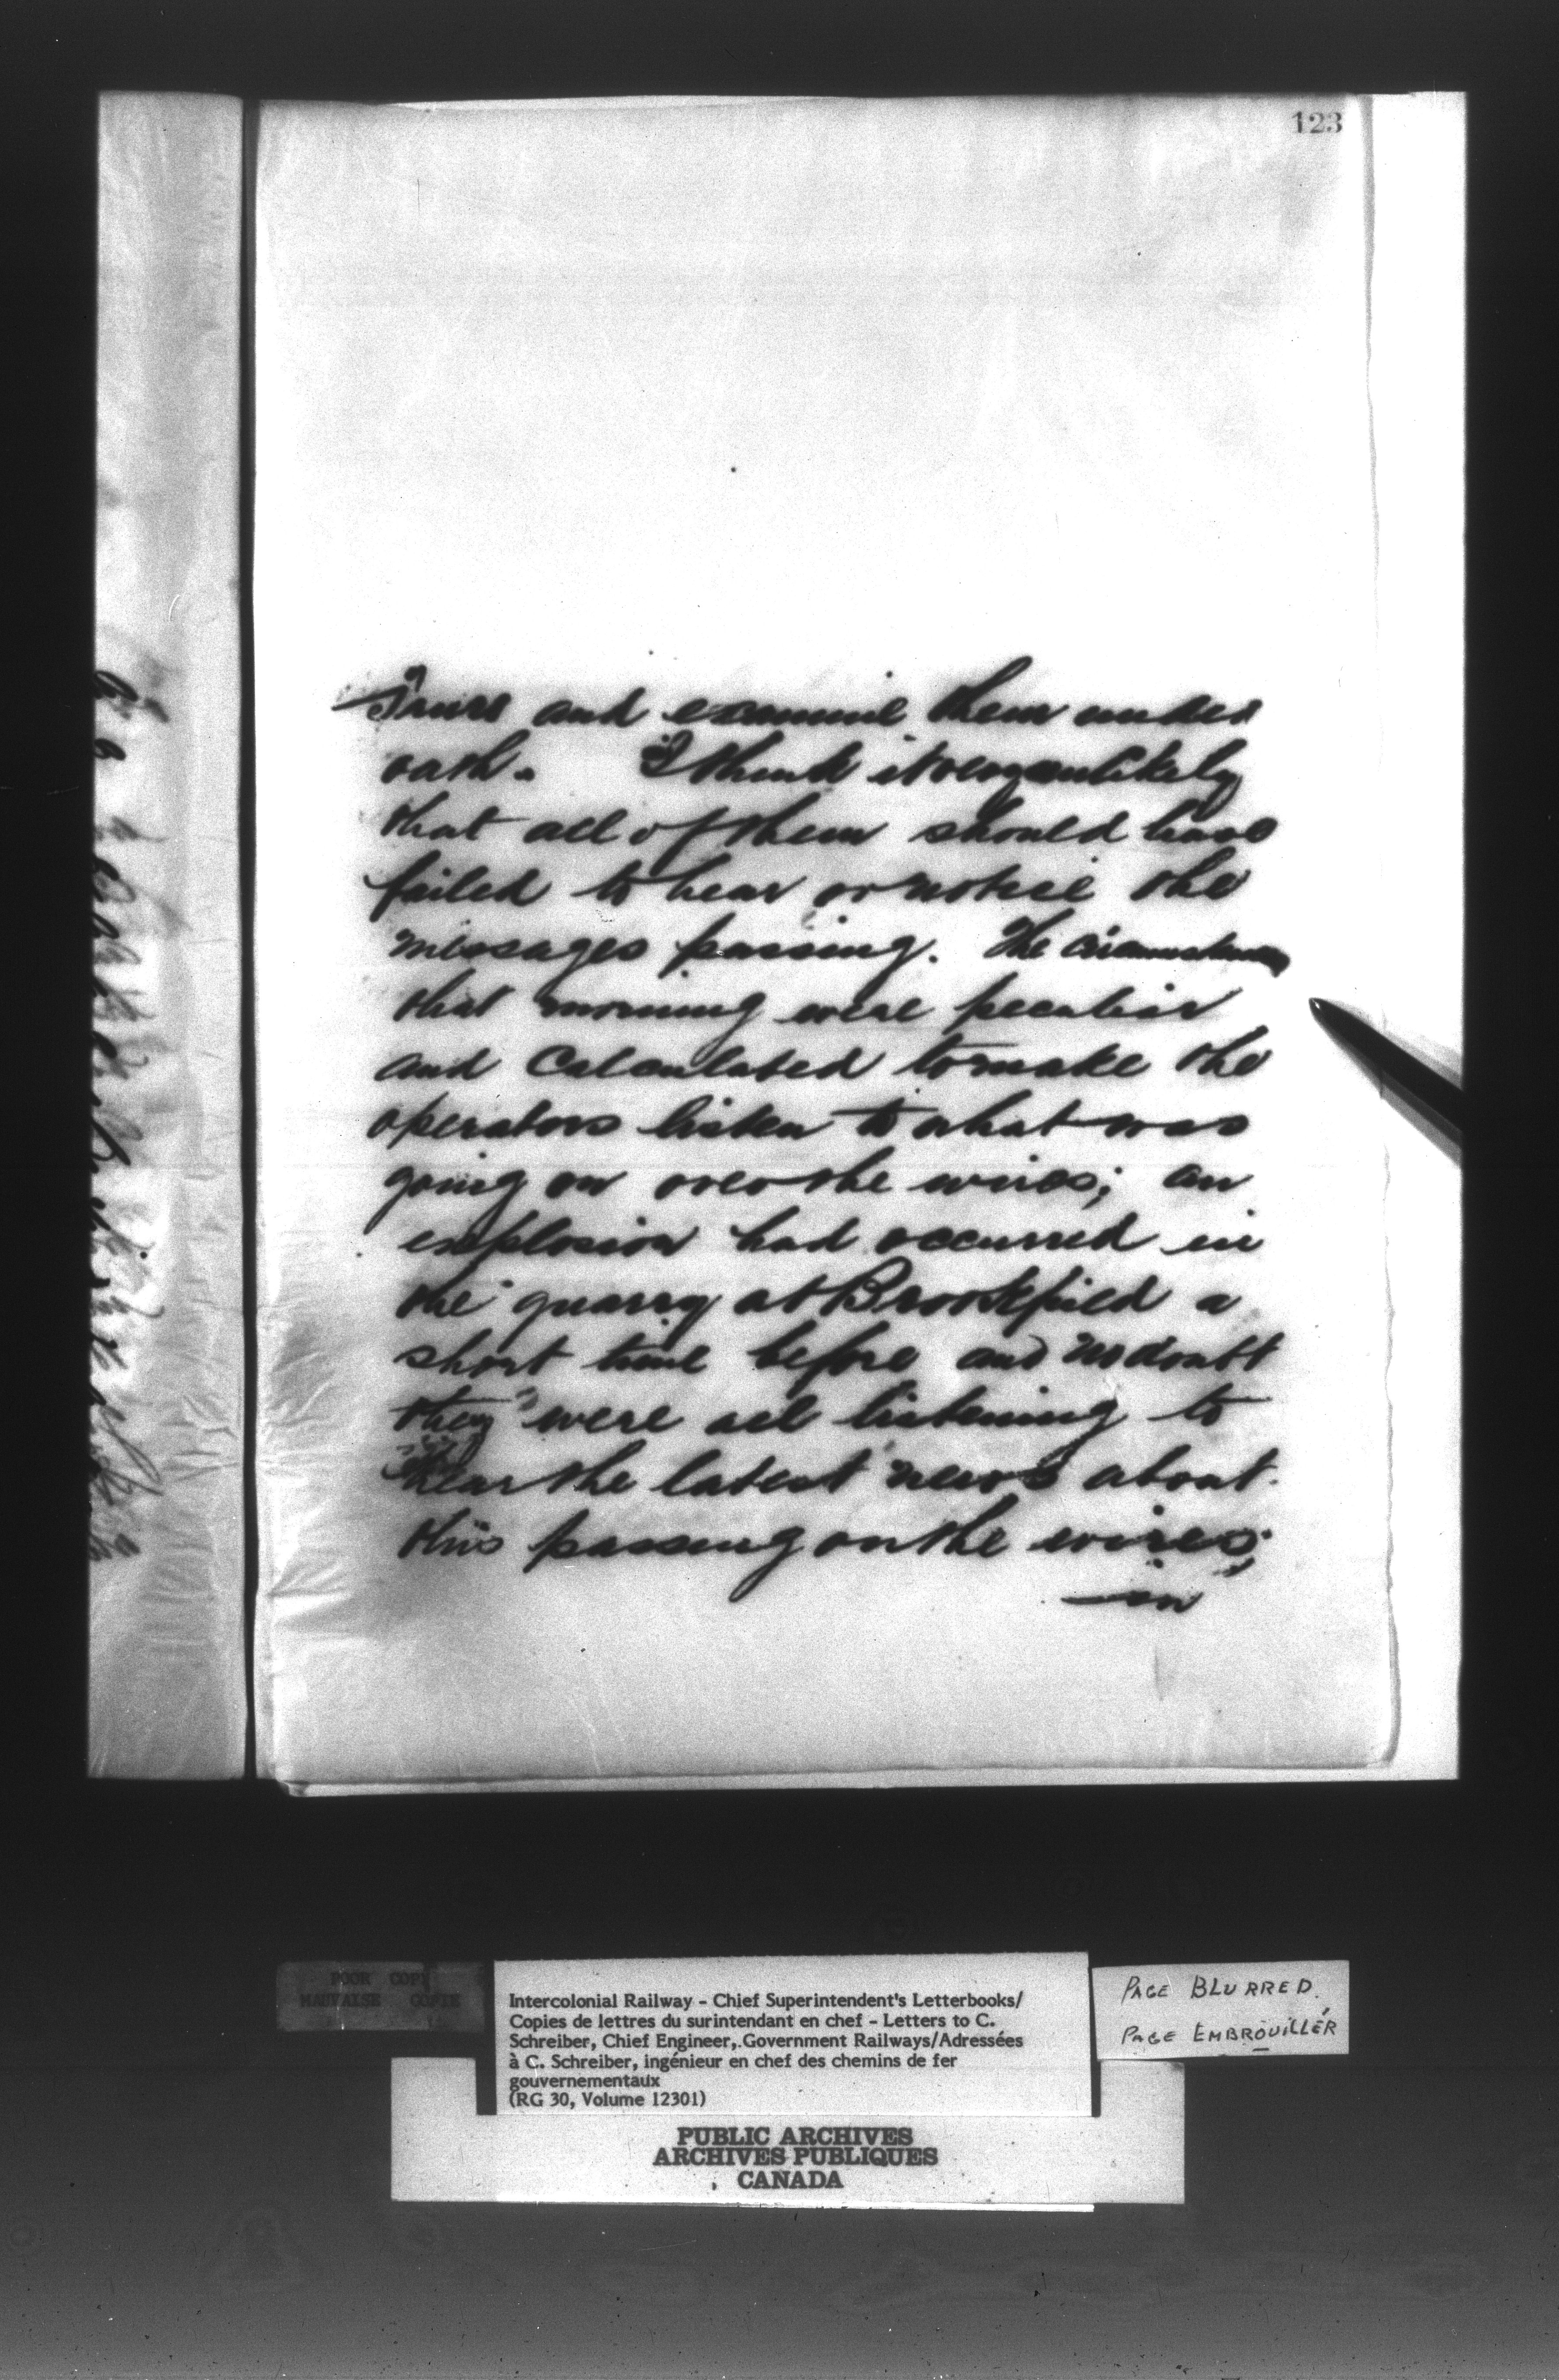 123
Truro and examine them under
oath. I think it very unlikely
that all of them should have
failed to hear or notice the
messages passing. The circumstances
that morning were peculiar
and calculated to make the
operators listen to what was
going on over the wires; an
explosion had occurred in
the quarry at Brookfield a
short time before and no doubt
they were all listening to
hear the latest news about
this passing on the wires;
in
POOR COPY
MAUVAISE COPIE
Intercolonial Railway - Chief Superintendent's Letterbooks/
Copies de lettres du surintendant en chef - Letters to C.
Schreiber, Chief Engineer,.Government Railways/Adressées
à C. Schreiber, ingénieur en chef des chemins de fer
gouvernementaux
(RG 30, Volume 12301)
PAGE BLURRED.
PAGE EMBROUILLÉR
PUBLIC ARCHIVES
ARCHIVES PUBLIQUES
CANADA